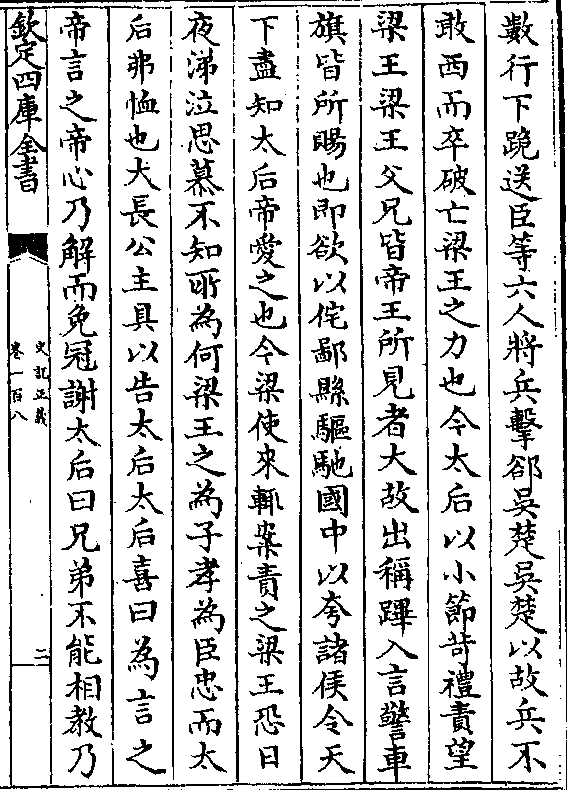 數行下跪送臣等六人將兵擊郤吳楚吳楚以故兵不
敢西而卒破亡梁王之力也今太后以小節苛禮責望
梁王梁王父兄皆帝王所見者大故出稱蹕入言警車
旗皆所賜也即欲以侘鄙縣驅馳國中以夸諸侯令天
下盡知太后帝愛之也今梁使來輒案責之梁王恐日
夜涕泣思慕不知所為何梁王之為子孝為臣忠而太
后弗恤也大長公主具以告太后太后喜曰為言之
帝言之帝心乃解而免冠謝太后曰兄弟不能相教乃
欽定四庫全書
史記正義
卷一百八
二